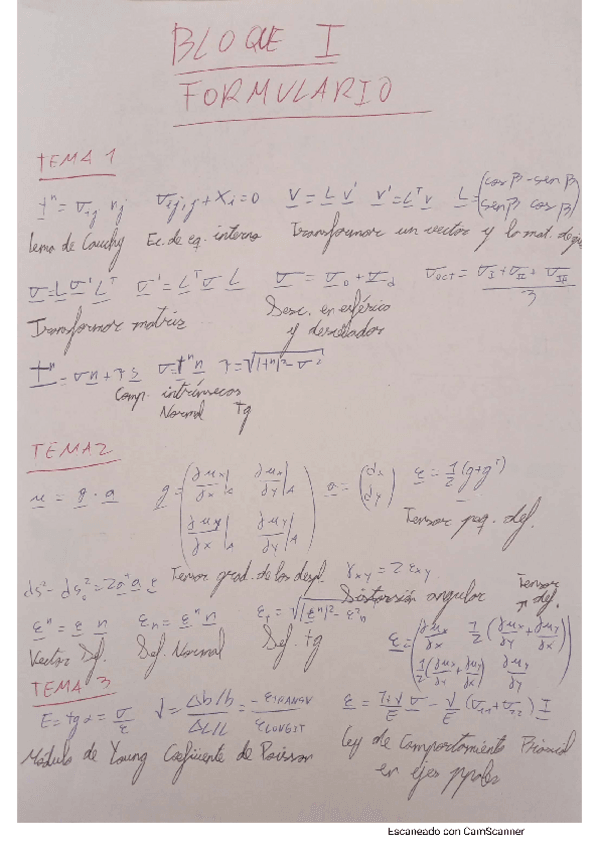 BLOQUE I
FORMULARIO
TEMA 1
tⁿ = σij nj   σij,j + Xi = 0   v = L v'   v' = Lᵀ v   L = (cos β -sen β
sen β cos β)
Lema de Cauchy   Ec. de eq. interno   Transformar un vector y la mat. de
σ = L σ' Lᵀ   σ' = Lᵀ σ L   σ = σo + σd   σOCT = (σI + σII + σIII)/3
Transformar matriz   Desc. en esférico
y desviador
tⁿ = σ n + τ s   σ = tⁿ n   τ = √(|tⁿ|² - σ²)
Comp. intrínsecas
Normal   tg
TEMA 2
u = g · a   g = (∂ux/∂x|A ∂ux/∂y|A
∂uy/∂x|A ∂uy/∂y|A)   a = (dx
dy)   ε = 1/2 (g + gᵀ)
Tensor peq. def.
ds² - ds₀² = 2 aᵀ a ε   Tensor grad. de los despl.   γxy = 2 εxy
Distorsión angular   Tensor
def.
εⁿ = ε n   εn = εⁿ n   εt = √(|εⁿ|² - ε²n)   ε = (∂ux/∂x 1/2 (∂ux/∂y + ∂uy/∂x)
1/2 (∂ux/∂y + ∂uy/∂x) ∂uy/∂y)
Vector Def.   Def. Normal   Def. tg
TEMA 3
E = tg α = σ/ε   ν = (Δb/b)/(ΔL/L) = -εTRANSV/εLONGIT   ε = (1+ν)/E σ - ν/E (σ11 + σ22) I
Módulo de Young   Coeficiente de Poisson   Ley de Comportamiento
en ejes ppales
Escaneado con CamScanner